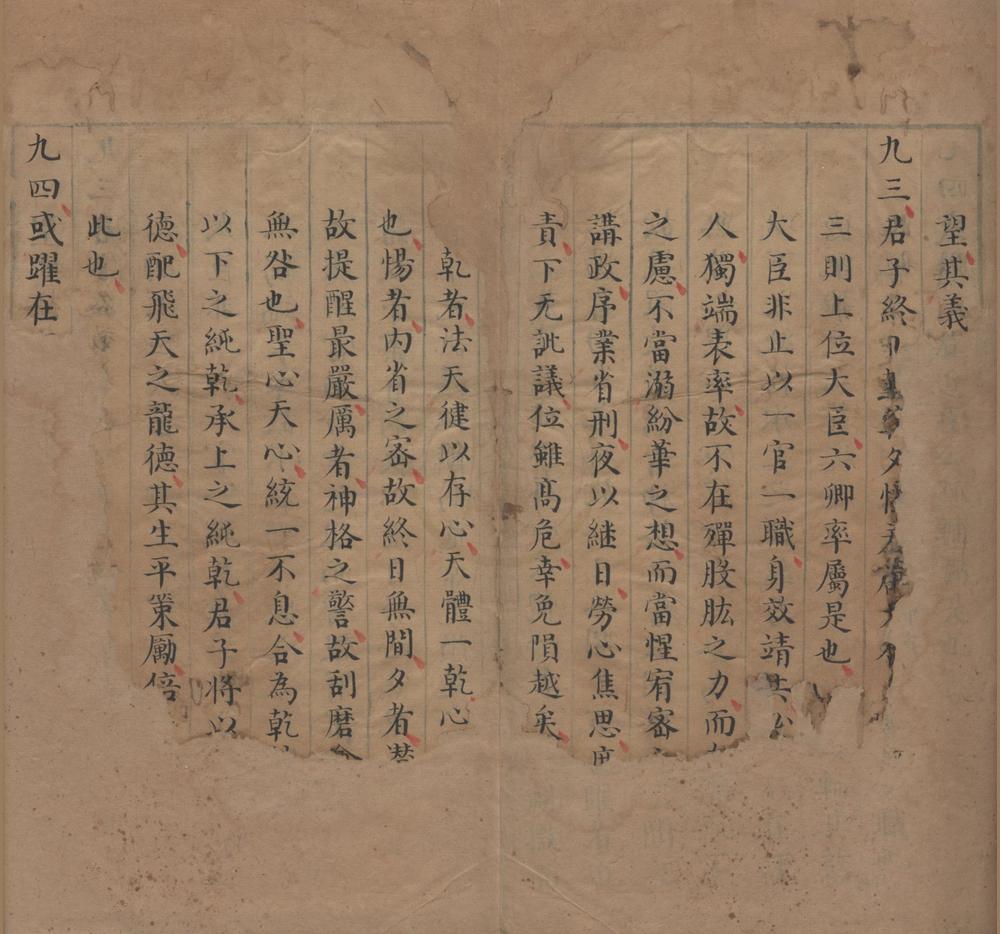 望其義
九三君子終日乾乾夕惕若厲无
三則上位大臣六卿率屬是也
大臣非止以一官一職身效靖共
人獨端表率故不在殫股肱之力而
之慮不當溺紛華之想而當惺宥密
講政序業省刑夜以継日勞心焦思庶
責下无訿議位雖髙危幸免隕越矣
乾者法天徤以存心天體一乾心
也惕者内省之密故終日無間夕者
故提醒最嚴厲者神格之警故刮磨
無咎也聖心天心統一不息合為乾
以下之純乾承上之純乾君子將以
德配飛天之龍德其生平策勵倍
此也
九四或躍在